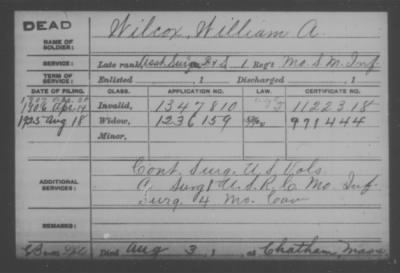 DEAD
NAME OF SOLDIER:
Wilcox, William A.
SERVICE:
Late rank Asst Surg F&S 1 Reg't Mo. S. M. Inf
TERM OF SERVICE:
Enlisted , 1 Discharged , 1
DATE OF FILING. CLASS. APPLICATION NO. CERTIFICATE NO.
1906 Apr 14 Invalid, 1347810 1122318
1925 Aug 18 Widow, 1236159 971444
Minor,
ADDITIONAL SERVICES:
Cont. Surg. U.S. Vols.
Surg. U.S.R.C. Mo. Inf.
Surg. 4 Mo. Cav
REMARKS:
Died Aug 3, 1 at Chatham, Mass